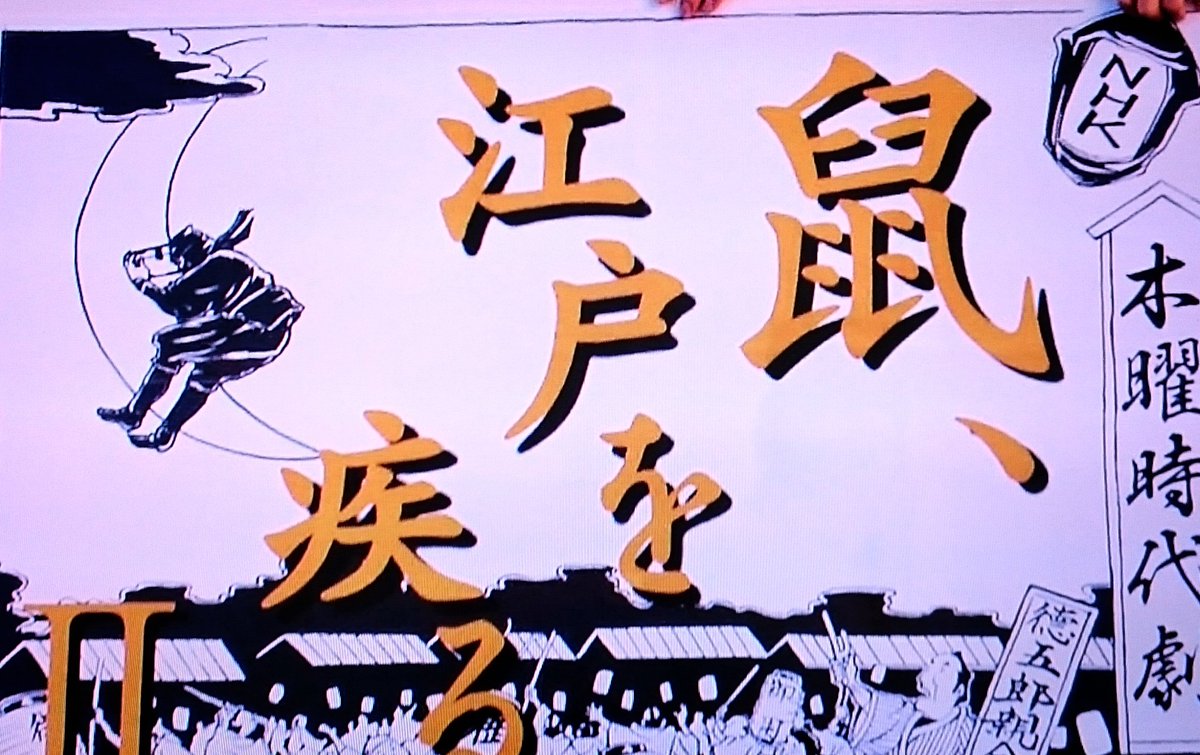 NHK
木曜時代劇
鼠、
江戸を
疾る
II
徳五郎親